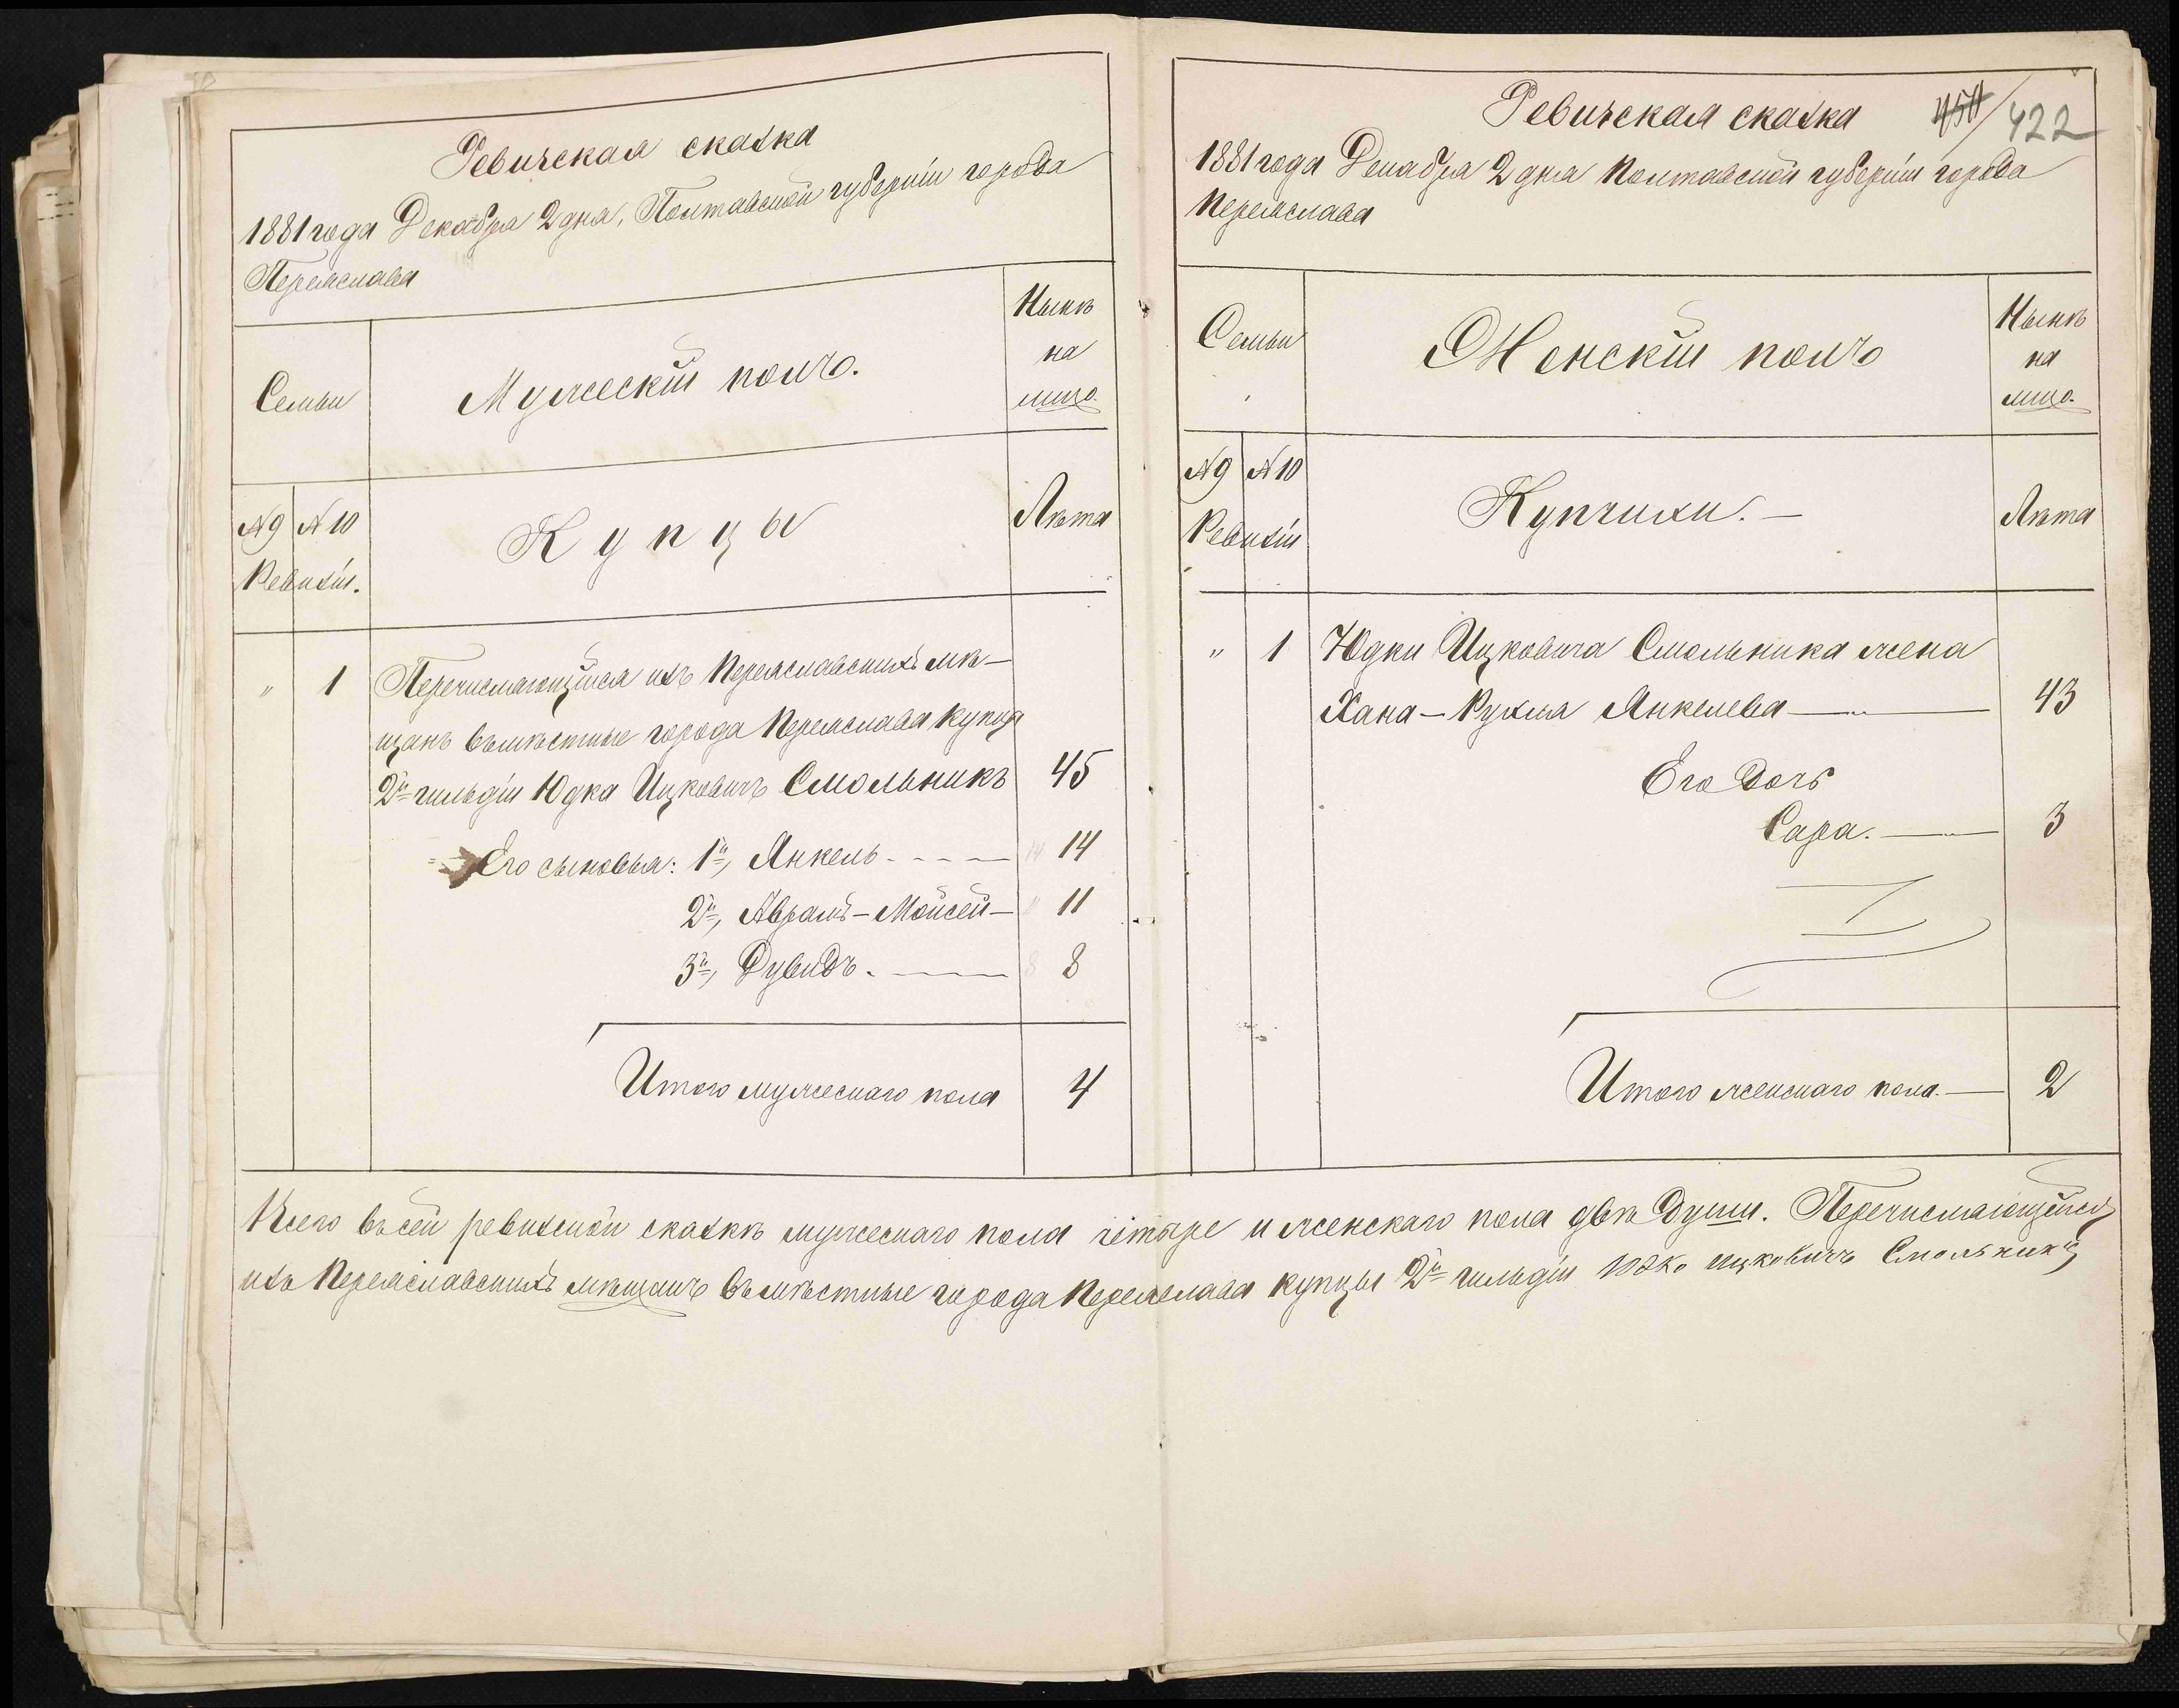 Ревизская сказка
1881 года Декабря 2 дня, Полтавской губернiи города
Переяслава
Семьи
Мужескiй полъ.
Нынѣ
на
лицо.
№ 9 № 10
Ревизiи.
Купцы
Лѣта
" 1 Перечисляющiйся изъ Переяславскихъ мѣ-
щанъ въ мѣстные города Переяслава купцы
2й гильдiи Юдка Ицковичъ Смольникъ 45
Его сыновья: 1й, Янкель - - - — 14
2й, Аврамъ-Мойсей — 11
3й, Дувидъ. — 8
Итого мужескаго пола 4
Ревизская сказка 422
1881 года Декабря 2 дня Полтавской губернiи города
Переяслава
Семьи
Женскiй полъ
Нынѣ
на
лицо.
№ 9 № 10
Ревизiи
Купчихи. —
Лѣта
" 1 Юдки Ицковича Смольника жена
Хана-Рухля Янкелева — 43
Его дочь
Сара. — 3
Итого женскаго пола. — 2
Всего въ сей ревизской сказкѣ мужескаго пола четыре и женскаго пола двѣ души. Перечисляющiйся
изъ Переяславскихъ мѣщанъ въ мѣстные города Переяслава купцы 2й гильдiи Юдко Ицковичъ Смольникъ